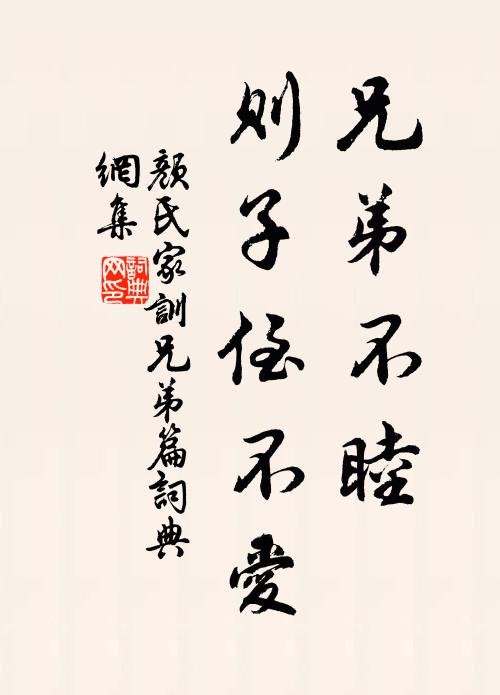 兄弟不睦
則子侄不愛
顏氏家訓兄弟篇詞典
網集
詞典
网印